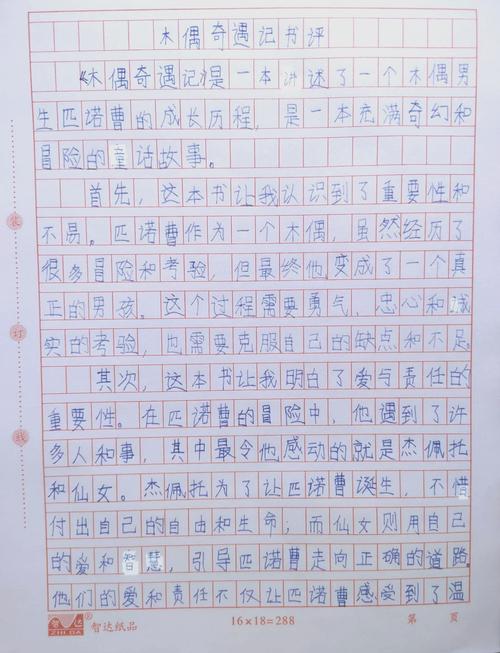 木偶奇遇记书评
《木偶奇遇记》是一本讲述了一个木偶男
生匹诺曹的成长历程，是一本充满奇幻和
冒险的童话故事。
首先，这本书让我认识到了重要性和
不易。匹诺曹作为一个木偶，虽然经历了
很多冒险和考验，但最终他变成了一个真
正的男孩。这个过程需要勇气，忠心和诚
实的考验，也需要克服自己的缺点和不足。
其次，这本书让我明白了爱与责任的
重要性。在匹诺曹的冒险中，他遇到了许
多人和事，其中最令他感动的就是杰佩托
和仙女。杰佩托为了让匹诺曹诞生，不惜
付出自己的自由和生命；而仙女则用自己
的爱和智慧，引导匹诺曹走向正确的道路。
他们的爱和责任不仅让匹诺曹感受到了温
装
订
线
智达 ZHI DA ® 智达纸品 16×18=288 第 页